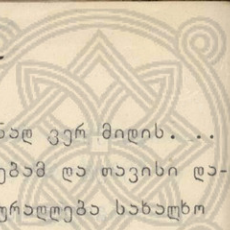 ნად ვერ მიდის. ..
ებამ და თავისი და-
ურადღება სახალხო